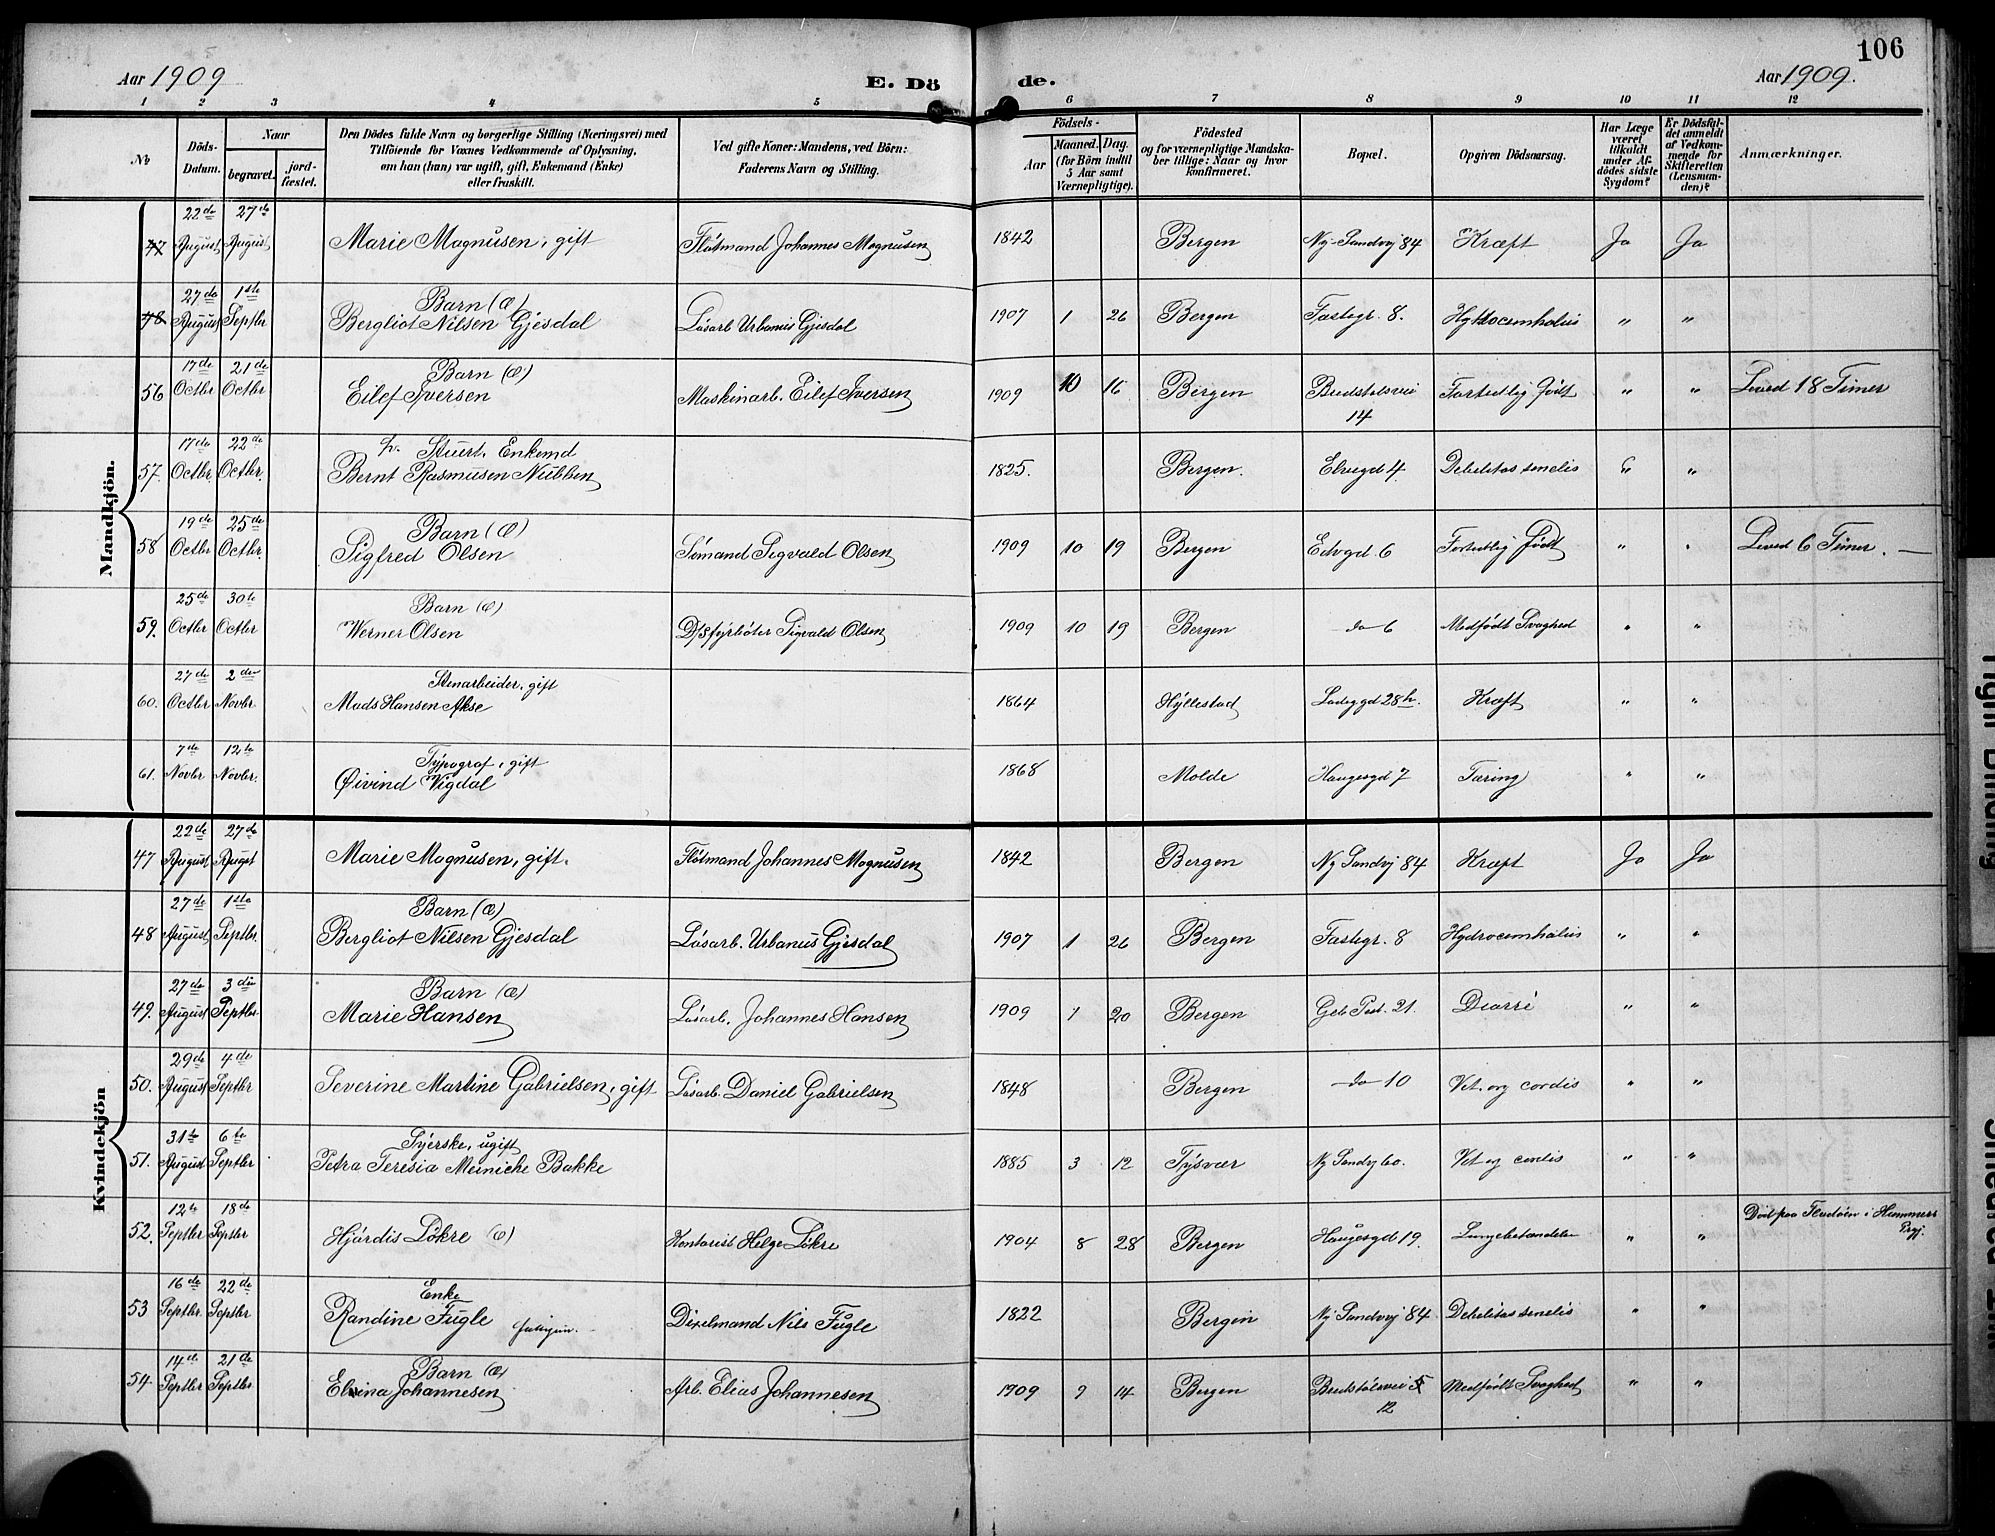 106
Aar 1909 E. Dö de. Aar 1909.
1 2 3 4 5 6 7 8 9 10 11 12
No
Döds-Datum.
Naar
begravet.
jord-fæstet.
Den Dödes fulde Navn og borgerlige Stilling (Næringsvei) med
Tilföiende for Voxnes Vedkommende af Oplysning,
om han (hun) var ugift, gift, Enkemand (Enke)
eller fraskilt.
Ved gifte Koner: Mandens, ved Börn:
Faderens Navn og Stilling.
Födsels-
Aar
Maaned. Dag.
(for Börn indtil
5 Aar samt
Værnepligtige).
Födested
og for værnepligtige Mandska-
ber tillige: Naar og hvor
konfirmeret.
Bopæl.
Opgiven Dödsaarsag.
Har Læge
været
tilkaldt
under Af-
dödes sidste
Sygdom?
Er Dödsfal-
det anmeldt
af Vedkom-
mende for
Skifteretten
(Lensman-
den)?
Anmærkninger.
Mandkjön.
47 22de August 27de August Marie Magnusen, gift Flötmand Johannes Magnusen 1842 Bergen Ny-Sandvj 84 Kræft Ja Ja
48 27de August 1ste Septbr Barn (Æ)
Bergliot Nilsen Gjesdal Lösarb Urbanus Gjesdal 1907 1 26 Bergen Fastegr. 8. " "
56 17de Octbr 21de Octbr Barn (Æ)
Eilef Iversen Maskinarb. Eilef Iversen 1909 10 16 Bergen Bredstölsvei 14 Fortidlig födt " " Leved 18 Timer
57. 17de Octbr. 22de Octbr. Stuert. Enkemd
Bernt Rasmusen Nubben 1825. Bergen. Elvegd 4. Debelitas senelis " "
58 19de Octbr 25de Octbr. Barn (Æ)
Sigfred Olsen Sömand Sigvald Olsen 1909 10 19 Bergen Elvgd 6 Fortidlig födt " " Leved 6 Timer. —
59. 25de Octbr 30te Octbr Barn (Æ)
Werner Olsen D/S fyrböter Sigvald Olsen 1909 10 19 Bergen do 6 Medfödt Svaghed " "
60. 27de Octbr 2den Novbr Stenarbeider, gift
Mads Hansen Akse 1864 Hyllestad Ladeggd 28b. Kræft " "
61. 7de Novbr 12te Novbr. Typograf, gift
Øivind Vigdal 1868 Molde Haugesgd 7 Tæring " "
Kvindekjön
47 22de August 27de August Marie Magnusen, gift. Flötmand Johannes Magnusen 1842 Bergen Ny Sandvj 84 Kræft Ja Ja
48 27de August 1ste Septbr. Barn (Æ)
Bergliot Nilsen Gjesdal Lösarb. Urbanus Gjesdal 1907 1 26 Bergen Fastegr. 8 " "
49. 27de August 3die Septbr. Barn (Æ)
Marie Hansen Lösarb. Johannes Hansen 1909 1 20 Bergen Geb Post. 21. Diarré " "
50. 29de August 4de Septbr Severine Martine Gabrielsen, gift Lösarb. Daniel Gabrielsen 1848 Bergen do 10 Vet. org cordis " "
51. 31te August 6te Septbr Syerske, ugift
Petra Teresia Meiniche Bakke 1885 3 12 Tysvær Ny Sandvj 60. Vet org cordis " "
52. 12te Septbr 18de Septbr Hjördis Lökre (Æ) Kontorist Helge Lökre 1904 8 28 Bergen Haugesgd 19. Lungebetændelse " " Död paa Fludöen i Hammers Prgj.
53 16de Septbr. 22de Septbr Enke
Randine Fugle Dixelmand Nils Fugle 1822 Bergen Ny Sandvj 84 Debelitas senelis " "
54 14de Septbr 21de Septbr Barn (Æ)
Elvina Johannesen Arb. Elias Johannesen 1909 9 14 Bergen Bredstölsvei 12 Medfödt Svaghed " "